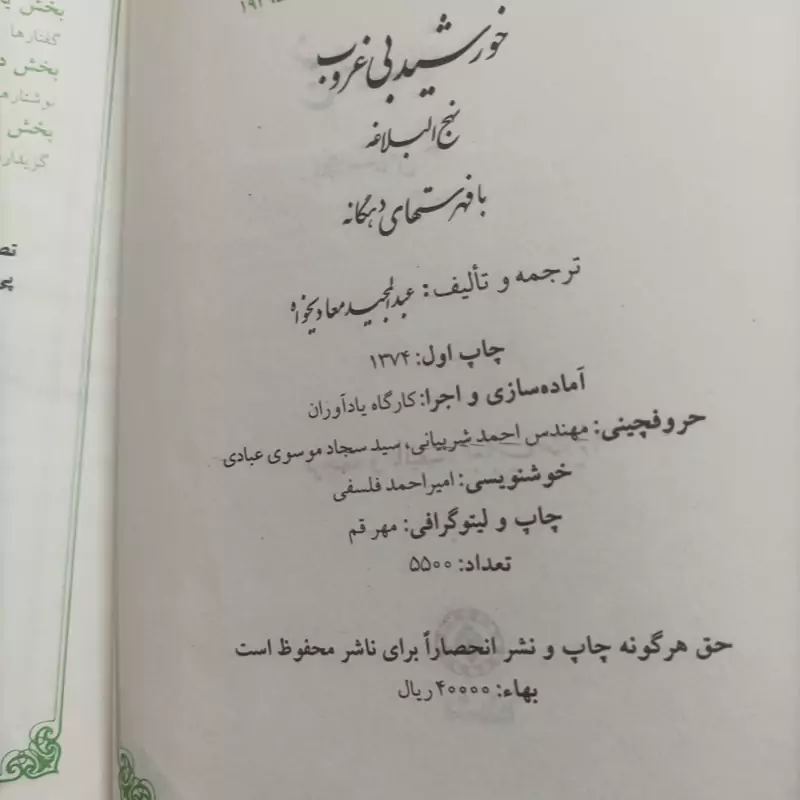 خورشید بی غروب
نهج البلاغه
با فهرستهای دهگانه
ترجمه و تألیف: عبدالمجید معادیخواه
چاپ اول: ۱۳۷۴
آماده‌سازی و اجرا: کارگاه یادآوران
حروفچینی: مهندس احمد شربیانی، سید سجاد موسوی عبادی
خوشنویسی: امیراحمد فلسفی
چاپ و لیتوگرافی: مهر قم
تعداد: ۵۵۰۰
حق هرگونه چاپ و نشر انحصاراً برای ناشر محفوظ است
بهاء: ۴۰۰۰۰ ریال
بخش
گفتارها
بخش
نوشتارها
بخش